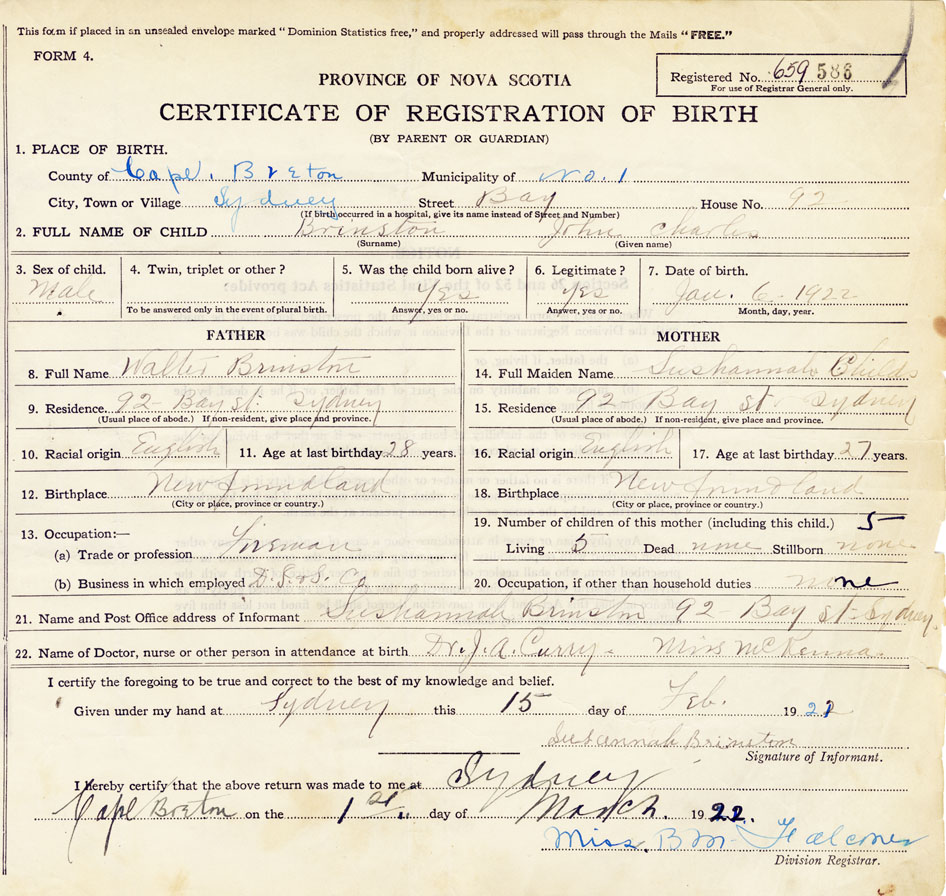 This form if placed in an unsealed envelope marked "Dominion Statistics free," and properly addressed will pass through the Mails "FREE."
FORM 4.
PROVINCE OF NOVA SCOTIA
Registered No. 659 586
For use of Registrar General only.
CERTIFICATE OF REGISTRATION OF BIRTH
(BY PARENT OR GUARDIAN)
1. PLACE OF BIRTH.
County of Cape Breton Municipality of No. 1
City, Town or Village Sydney Street Bay House No. 92
(If birth occurred in a hospital, give its name instead of Street and Number)
2. FULL NAME OF CHILD Brinston John Charles
(Surname) (Given name)
3. Sex of child. 4. Twin, triplet or other? 5. Was the child born alive? 6. Legitimate? 7. Date of birth.
Male Yes Yes Jan. 6. 1922
To be answered only in the event of plural birth. Answer, yes or no. Answer, yes or no. Month, day, year.
FATHER
8. Full Name Walter Brinston
9. Residence. 92 - Bay st. Sydney
(Usual place of abode.) If non-resident, give place and province.)
10. Racial origin English 11. Age at last birthday 28 years.
12. Birthplace Newfoundland
(City or place, province or country.)
13. Occupation:—
(a) Trade or profession Fireman
(b) Business in which employed D. I. & S. Co
MOTHER
14. Full Maiden Name Sushannah Childs
15. Residence 92 - Bay st Sydney
(Usual place of abode.) If non-resident, give place and province.
16. Racial origin English 17. Age at last birthday 27 years.
18. Birthplace Newfoundland
(City or place, province or country.)
19. Number of children of this mother (including this child.) 5
Living 5 Dead none Stillborn none
20. Occupation, if other than household duties none
21. Name and Post Office address of Informant Sushannah Brinston 92 - Bay st - Sydney.
22. Name of Doctor, nurse or other person in attendance at birth Dr. J. A. Curry - Miss McKenna.
I certify the foregoing to be true and correct to the best of my knowledge and belief.
Given under my hand at Sydney this 15 day of Feb. 1922
Susannah Brinston
Signature of Informant.
I hereby certify that the above return was made to me at Sydney
Cape Breton on the 1st day of March. 1922.
Miss. B M. Falconer
Division Registrar.